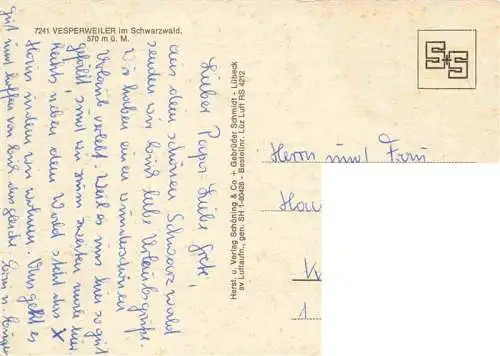 7241 VESPERWEILER im Schwarzwald.
570 m ü. M.
Lieber Papa, Liebe Grete!
aus dem schönen Schwarzwald
senden wir Euch liebe Urlaubsgrüße.
Wir haben einen wunderschönen
Urlaub verlebt. Weil es uns hier so gut
gefällt, sind wir zum zweiten male hier
Rechts neben dem Wald steht das X
Haus in dem wir wohnen. Uns geht es
gut und hoffen von Euch das gleiche.
Herst. u. Verlag Schöning & Co + Gebrüder Schmidt - Lübeck
sv Luftaufn., gen. SH 1-80428 - Bestellnr. Lüz Luft RS 4212
S+S
Herrn und Frau